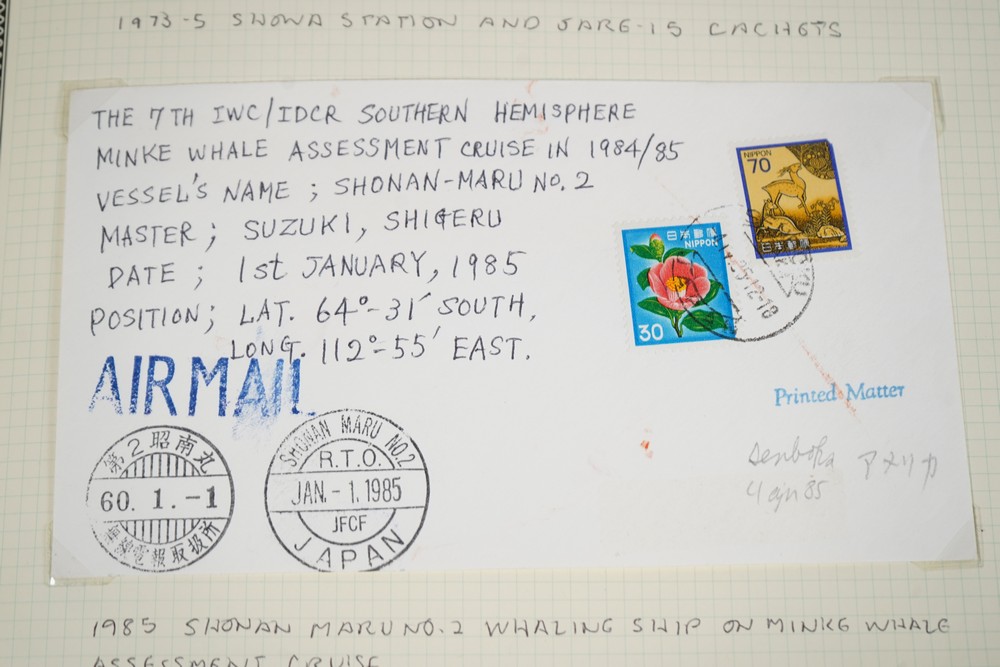 1973-5 SHOWA STATION AND JARE-15 CACHETS
THE 7TH IWC/IDCR SOUTHERN HEMISPHERE
MINKE WHALE ASSESSMENT CRUISE IN 1984/85
VESSEL'S NAME ; SHONAN-MARU NO. 2
MASTER ; SUZUKI, SHIGERU
DATE ; 1st JANUARY, 1985
POSITION ; LAT. 64°-31′ SOUTH,
LONG. 112°-55′ EAST.
NIPPON
70
日本郵便
日本郵便
NIPPON
30
AIR MAIL
Printed Matter
アメリカ
85
第2昭南丸
60. 1. -1
電報取扱所
SHONAN MARU NO.2
R.T.O.
JAN. - 1. 1985
JFCF
JAPAN
1985 SHONAN MARU NO. 2 WHALING SHIP ON MINKE WHALE
ASSESSMENT CRUISE